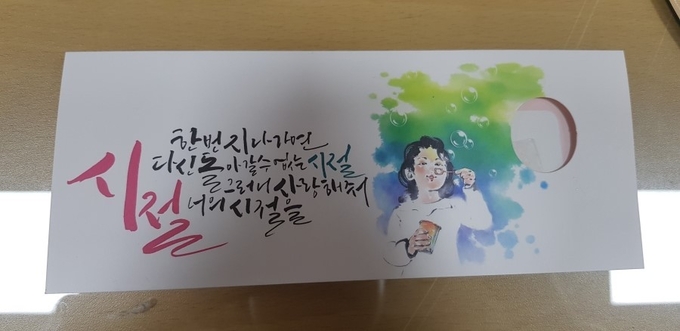 시절
한번 지나가면
다신 돌아갈수 없는 시절
그러니 사랑해줘
너의 시절을